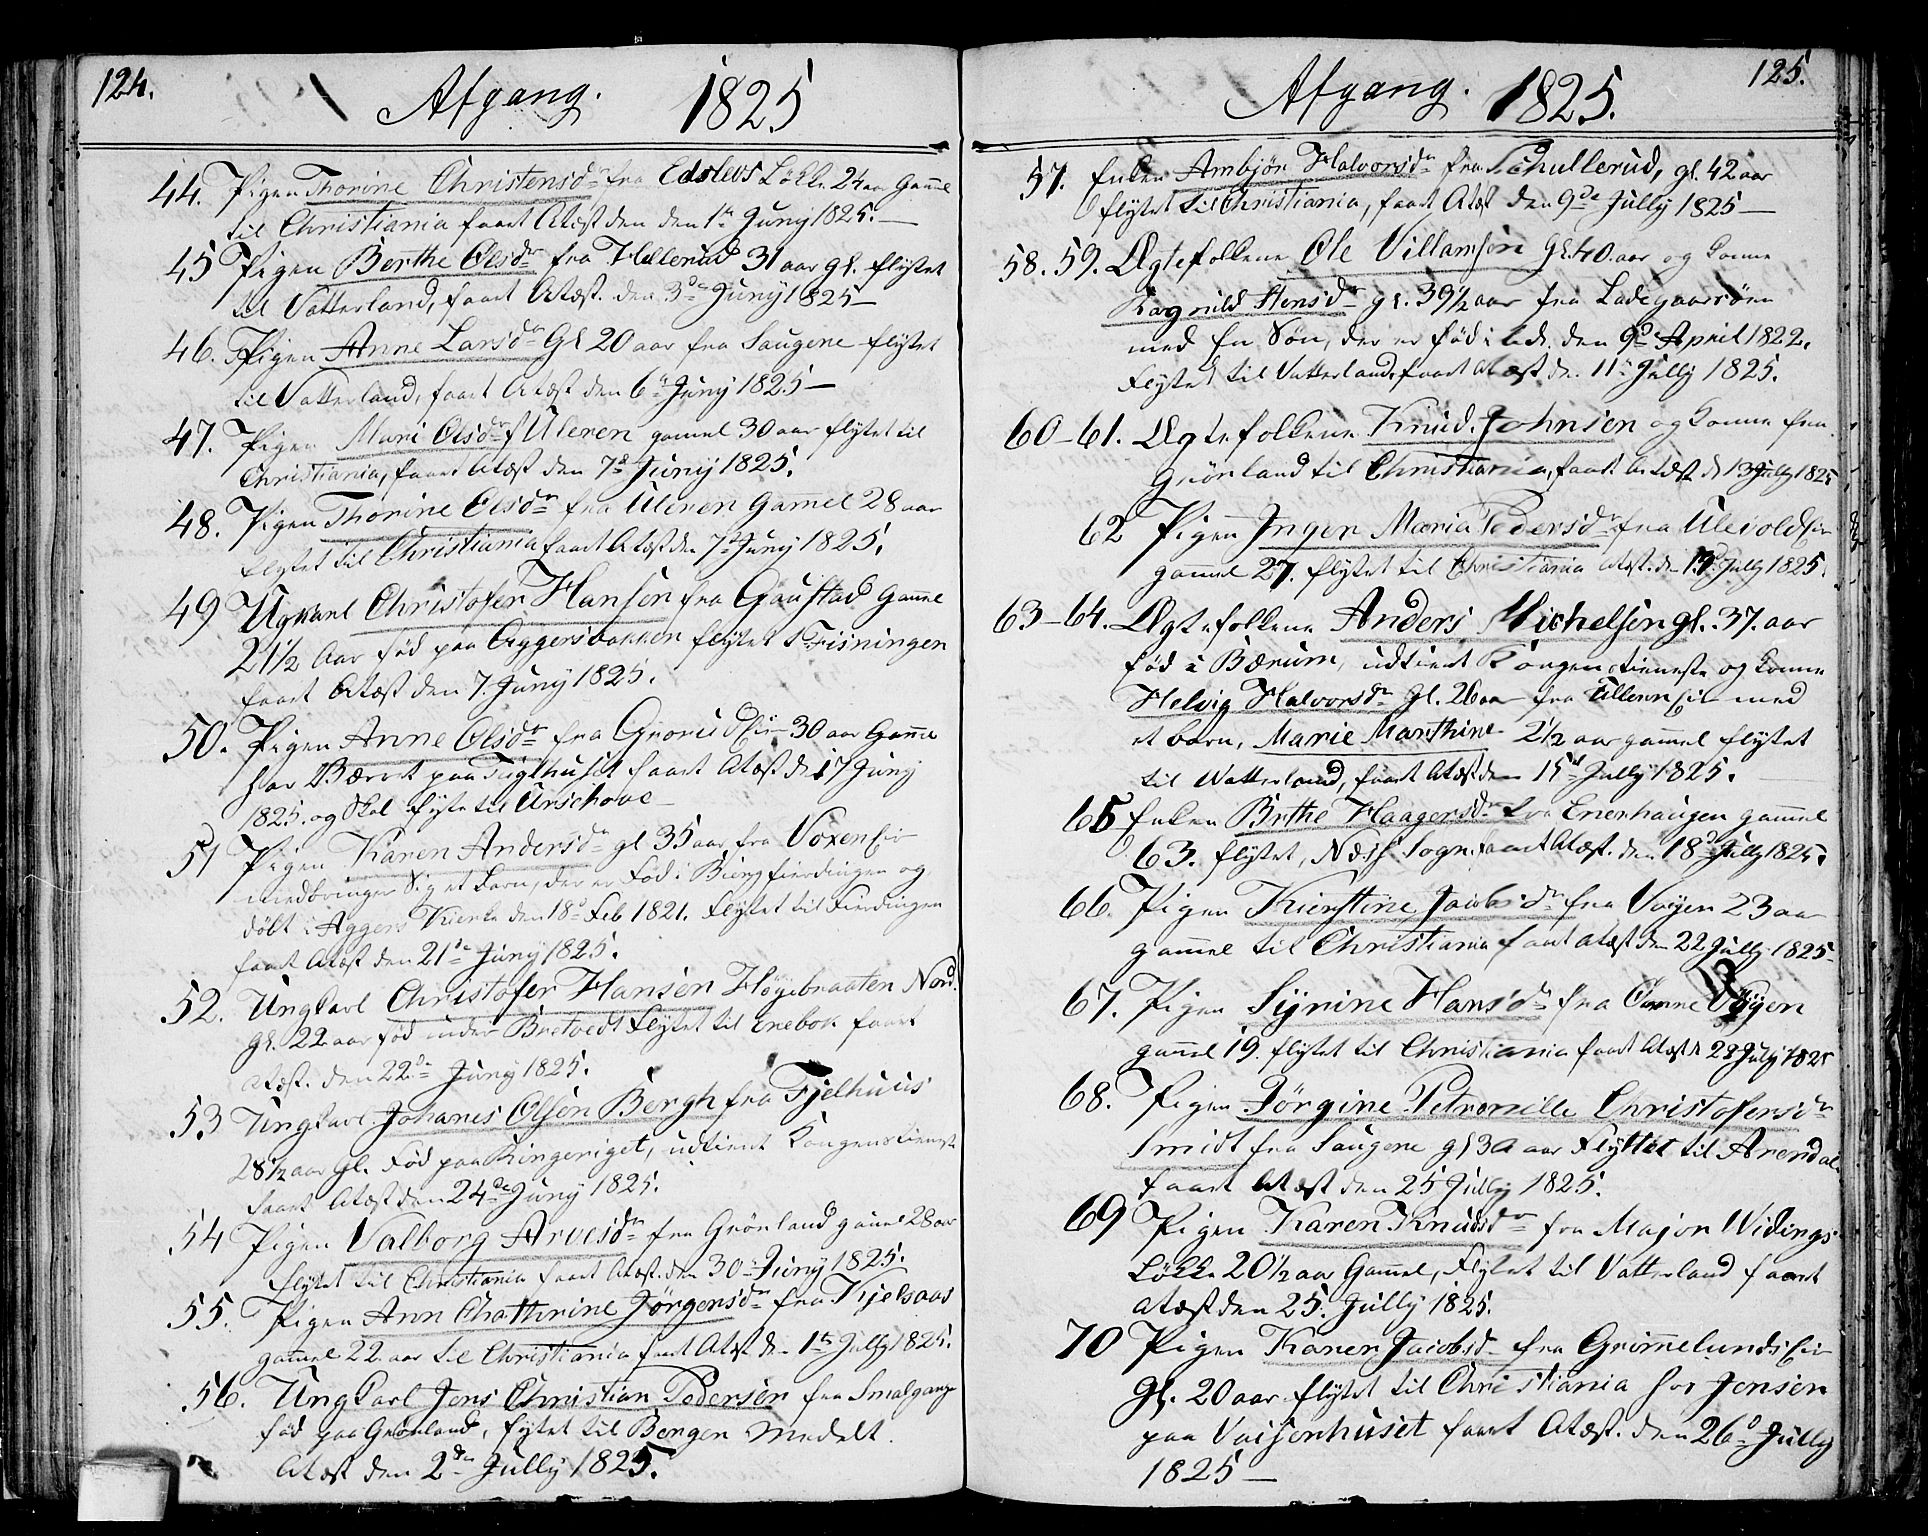 124.
Afgang. 1825
44. Pigen Thorine Christensdr fra Edslevs Løkke 24 aar Gamel
til Christiania faaet Atæst den den 1te Juny 1825.—
45 Pigen Berthe Olsdr fra Hellerud 31 aar gl. flyttet
til Vatterland, faaet Atæst. den 3de Juny 1825—
46. Pigen Anne Larsdr Gl 20 aar fra Saugene flyttet
til Vatterland, faaet Atæst den 6te Juny 1825—
47. Pigen Mari Olsdr f Uleren gamel 30 aar flyttet til
Christiania, faaet Atæst den 7d Juny 1825.
48. Pigen Thorine Olsdr fra Uleren Gamel 28 aar
flytet til Christiania faaet Atæst den 7d Juny 1825.
49 Ugkarl Christofer Hansen fra Gaustad Gamel
21 1/2 Aar fød paa Aggersbakken flytet
faaet Atæst den 7. Juny 1825.
50. Pigen Anne Olsdr fra Grorud Eie 30 aar Gamel
har Været paa Tugthuset faaet Atæst d 17 Juny
1825. og skal flytte til
51 Pigen Karen Andersdr gl 35 aar fra Voxen Eie
medbringer Sig et barn, der er Fød i fierdingen og
døbt i Aggers Kierke den 18d Feb 1821. Flytet til Fierdingen
faaet Atæst den 21de Juny 1825.
52. Ungkarl Christofer Hansen Høgebraaten Nord.
gl. 22 aar fød under Bretvedt flytet til Enebok faaet
Atæst. den 22de Juny 1825.
53 Ungkarl Johanes Olsen Bergh fra Fjelhuus
28 1/2 aar Gl. Fød paa Ringeriget, udtient Kongens tieneste
faaet Atæst den 24de Juny 1825.
54 Pigen Valborg Arvesdr fra Grønland gamel 28 aar
flytet til Christiania faaet Atæst. den 30te Juny 1825.
55. Pigen Ann Chathrine Jørgensdr fra Kjelsaas
gammel 22 aar til Christiania faaet Atæst den 1te Jully 1825.
56. Ungkarl Jens Christian Pedersen fra Smalgang
fød paa Grønland, flytet til Bergen Medelt.
Atæst den 2den Jully 1825.
125.
Afgang. 1825.
57. Enken Ambjør Halvorsdr fra Schullerud, gl. 42 aar
flytet til Christiania, faaet Atæst den 9de Jully 1825—
58. 59. Ægtefolkene Ole Villamsøn gl 40. aar og kone
Ragnild Stensdr gl. 39 1/2 aar fra Ladegaarsøen
med En Søn, der er Fød den 9d April 1822.
Flytet til Vatterland faaet Atæst den 11te Jully 1825.
60—61. Ægtefolkene Knud Johnsen og kone fra
Grønland til Christiania, faaet Atæst d 13 Jully 1825
62 Pigen Inger Maria Pedersdr fra Ulevold Eie
gammel 27. flytet til Christiania Atæst. den Jully 1825.
63—64. Ægtefolkene Anders Michelsen gl. 37. aar
fød i Bærum, udtient Kongens tieneste og kone
Helvig Halvorsdr Gl. 26 aar fra Ullern Eie med
et barn, Marie Marthine 2 1/2 aar gammel flytet
til Vatterland, faaet Atæst den 15d Jully 1825.
65 Enken Birthe Haagersdr fra Enerhaugen gammel
63. flytet, Næss Sogn faaet Atæst. den 18d Jully 1825.
66. Pigen Kierstine Jacobsdr fra Vøyen 23 aar
gammel til Christiania faaet Atæst den 22 Jully 1825—
67. Pigen Syrine Hansdr fra Vøyen
gamel 19. flytet til Christiania faaet Atæst d 23 July 1825
68. Pigen Jørgine Petronille Christofersdr
Smidt fra Saugene gl 30 aar Flyttet til Arendal
faaet Atæst den 25 Jully 1825.
69 Pigen Karen Knudsdr fra Major Widings
Løkke 20 1/2 aar Gammel, Flytet til Vatterland faaet
Atæst den 25. Jully 1825.
70 Pigen Karen Jacobsd fra Grimelunds Eie
Gl. 20 aar flytet til Christiania hos Jensen
paa Vaisenhuset faaet Atæst. den 26d Jully
1825—